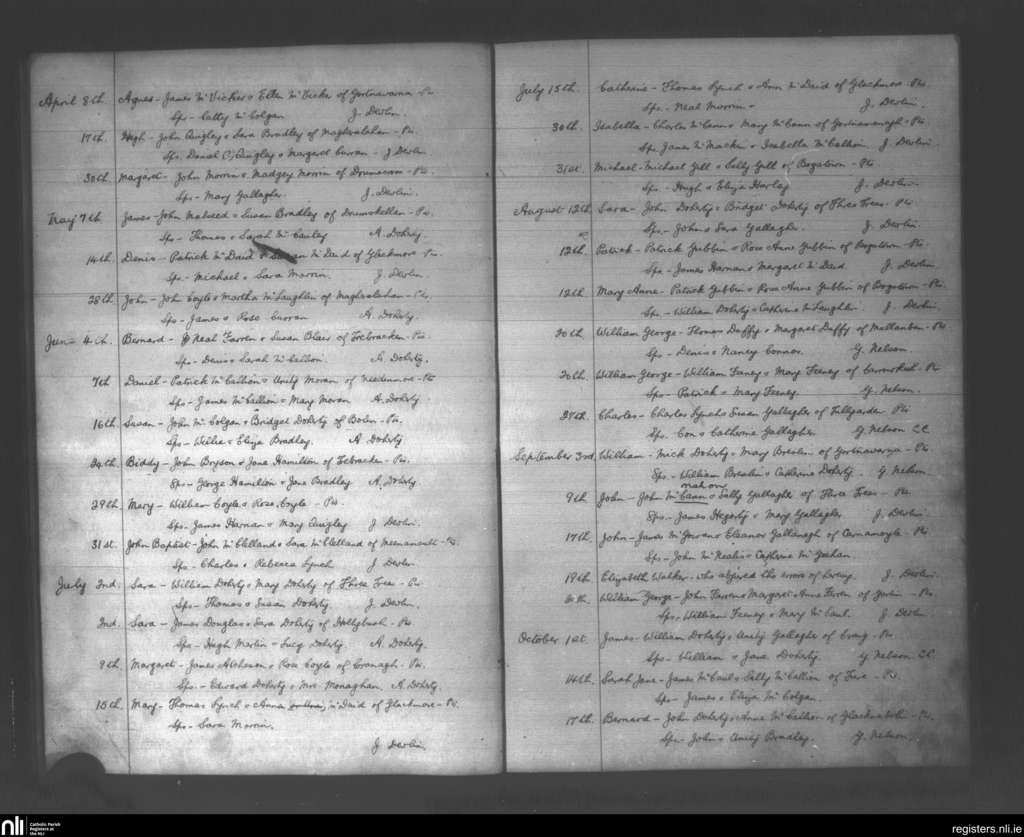 April 8th. Agnes - James McVicker & Ellen McVicker of Gortnavarna - Prs.
Sps - Catty McColgan J. Devlin.
17th. Hugh - John Quigley & Sara Bradley of Maghralahan - Prs.
Sps. Daniel O'Quigley & Margaret Curran - J Devlin
30th. Margaret - John Morrin & Madgey Morrin of - Prs.
Sps - Mary Gallagher. J. Devlin.
May 7th James - John & Susan Bradley of Drumskellan - Prs.
Sps - Thomas & Sarah McCauley A. Doherty.
14th. Denis - Patrick McDaid & McDaid of Glackmore Prs.
Sps - Michael & Sara Morrin. J. Devlin.
28th. John - John Coyle & Martha McLaughlin of Maghralahan - Prs.
Sps - James & Rose Curran A. Doherty.
June 4th. Bernard - Neal Farren & Susan Blair of Trebracken - Prs.
Sps - Denis & Sarah McCallion. A. Doherty.
7th Daniel - Patrick McCallion & Unity Moran of - Prs
Sps - James McCallion & Mary Moran A. Doherty
16th. Susan - John McColgan & Bridget Doherty of - Prs.
Sps - Willie & Eliza Bradley. A Doherty
24th. Biddy - John Bryson & Jane Hamilton of Trebracken - Prs.
Sps - George Hamilton & Jane Bradley A. Doherty
29th. Mary - William Coyle & Rose Coyle - Prs.
Sps - James Harnan & Mary Quigley J Devlin.
31st. John Baptist - John McClelland & Sara McClelland of - Prs.
Sps - Charles & Rebecca Lynch J Devlin
July 2nd. Sara - William Doherty & Mary Doherty of Three Trees - Prs
Sps - Thomas & Susan Doherty. J. Devlin.
2nd. Sara - James Douglas & Sara Doherty of Hollybush - Prs
Sps - Hugh Martin & Lucy Doherty A. Doherty.
9th. Margaret - James Atcheson & Rose Coyle of Cranagh - Prs.
Sps - Edward Doherty & Mrs Monaghan. A. Doherty.
15th. Mary - Thomas Lynch & Anna McDaid of Glackmore - Prs.
Sps - Sara Morrin.
J Devlin
July 15th. Catherine - Thomas Lynch & Ann McDaid of Glackmore Prs.
Sps - Neal Morrin - J. Devlin.
30th. Isabella - Charles McCann & Mary McCann of Gortnavanagh - Prs.
Sps James McMackin & Isabella McCallion J. Devlin.
31st. Michael - Michael Gill & Sally Gill of Bogstown - Prs
Sps - Hugh & Eliza Hartley J. Devlin.
August 12th. Sara - John Doherty & Bridget Doherty of Three Trees - Prs
Sps - John & Sara Gallagher. J. Devlin
12th. Patrick - Patrick Gubbin & Rose Anne Gubbin of Bogstown - Prs
Sps - James Harnan & Margaret McDaid. J. Devlin.
12th Mary Anne - Patrick Gubbin & Rose Anne Gubbin of Bogstown - Prs.
Sps - William Doherty & Catherine McLaughlin. J. Devlin.
20th William George - Thomas Duffy & Margaret Duffy of - Prs
Sps - Denis & Nancy Connor. G. Nelson.
20th. William George - William Feeney & Mary Feeney of Carrowkeel. Prs
Sps - Patrick & Mary Feeney. G. Nelson.
27th. Charles - Charles Lynch & Susan Gallagher of Tullygarden Prs.
Sps. Con & Catherine Gallagher G. Nelson C.C.
September 3rd. William - Mick Doherty & Mary Breslin of Gortnavarna - Prs
Sps - William Breslin & Catherine Doherty. G. Nelson
mahon
9th. John - John McCann & Sally Gallagher of Three Trees - Prs.
Sps - James Hegerty & Mary Gallagher J. Devlin.
17th. John - James McGowan & Eleanor Gallanagh of Carnamoyle - Prs
Sps - John McNealis & Catherine McGeehan.
19th. Elizabeth Walker. who abjured the errors of heresy. J. Devlin.
20th. William George - John Farren & Margaret Anne Farren of - Prs
Sps, William Feeney & Mary McCaul. J. Devlin
October 1st James - William Doherty & Unity Gallagher of Craig - Prs
Sps - William & Jane Doherty. G Nelson C.C.
14th. Sarah Jane - James McCaul & Sally McCallion of - Prs.
Sps - James & Eliza McColgan.
17th. Bernard - John Doherty & Anne McCallion of - Prs.
Sps - John & Unity Bradley. G. Nelson.
nli
Catholic Parish
Registers at
the NLI
registers.nli.ie